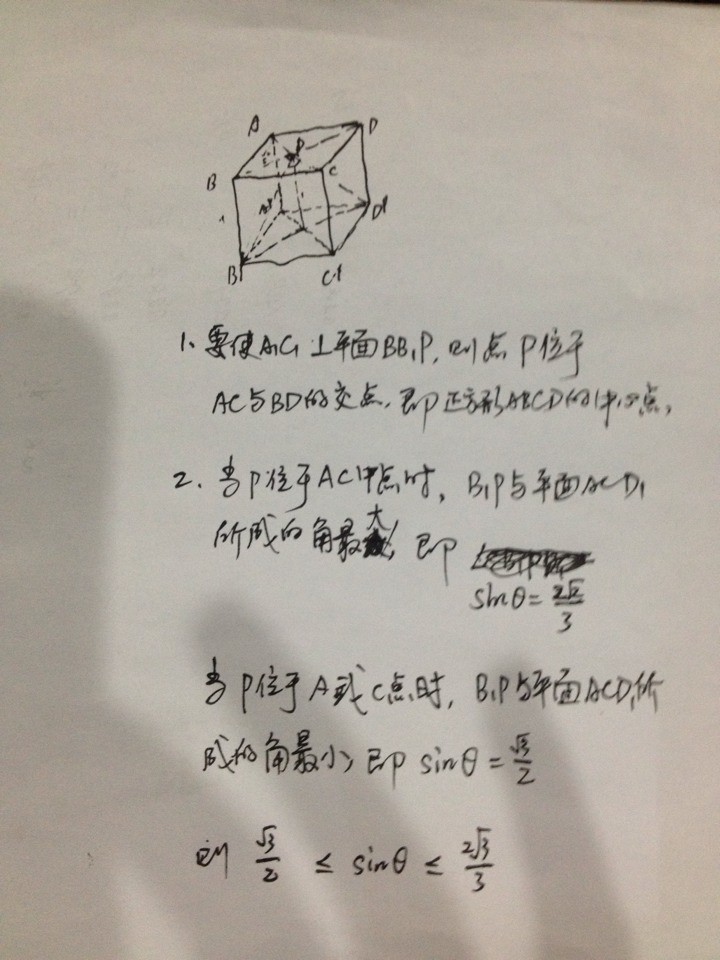 A
D
P
B
C
D1
B1
C1
1、要使A1C1⊥平面BB1P，则点P位于
AC与BD的交点，即正方形ABCD的中心点，
2、当P位于AC中点时，B1P与平面ACD1
所成的角最大，即
sinθ=2√2/3
当P位于A或C点时，B1P与平面ACD1所
成的角最小，即 sinθ=√3/2
则 √3/2 ≤ sinθ ≤ 2√3/3